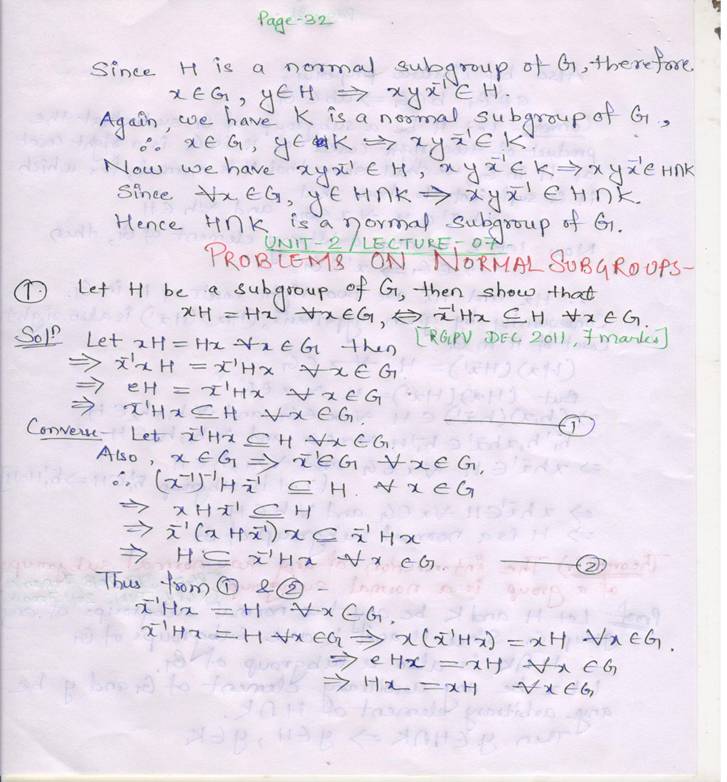 Page-32
Since H is a normal subgroup of G, therefore
x∈G, y∈H ⇒ xyx⁻¹∈H.
Again, we have K is a normal subgroup of G.,
∴ x∈G, y∈K ⇒ xyx⁻¹∈K.
Now we have xyx⁻¹∈H, xyx⁻¹∈K ⇒ xyx⁻¹∈H∩K
Since ∀x∈G, y∈H∩K ⇒ xyx⁻¹∈H∩K.
Hence H∩K is a normal subgroup of G.
UNIT-2/LECTURE-07
PROBLEMS ON NORMAL SUBGROUPS-
① Let H be a subgroup of G, then show that
xH = Hx ∀x∈G, ⇔ x⁻¹Hx ⊆ H ∀x∈G.
Solⁿ Let xH = Hx ∀x∈G then [RGPV DEC 2011, 7 marks]
⇒ x⁻¹xH = x⁻¹Hx ∀x∈G
⇒ eH = x⁻¹Hx ∀x∈G
⇒ x⁻¹Hx ⊆ H ∀x∈G. ①
Converse- Let x⁻¹Hx ⊆ H ∀x∈G.
Also, x∈G ⇒ x⁻¹∈G ∀x∈G.
∴ (x⁻¹)⁻¹Hx⁻¹ ⊆ H ∀x∈G
⇒ xHx⁻¹ ⊆ H
⇒ x⁻¹(xHx⁻¹)x ⊆ x⁻¹Hx
⇒ H ⊆ x⁻¹Hx ∀x∈G. ②
Thus from ① & ② -
x⁻¹Hx = H ∀x∈G.
x⁻¹Hx = H ∀x∈G ⇒ x(x⁻¹Hx) = xH ∀x∈G.
⇒ eHx = xH ∀x∈G
⇒ Hx = xH ∀x∈G